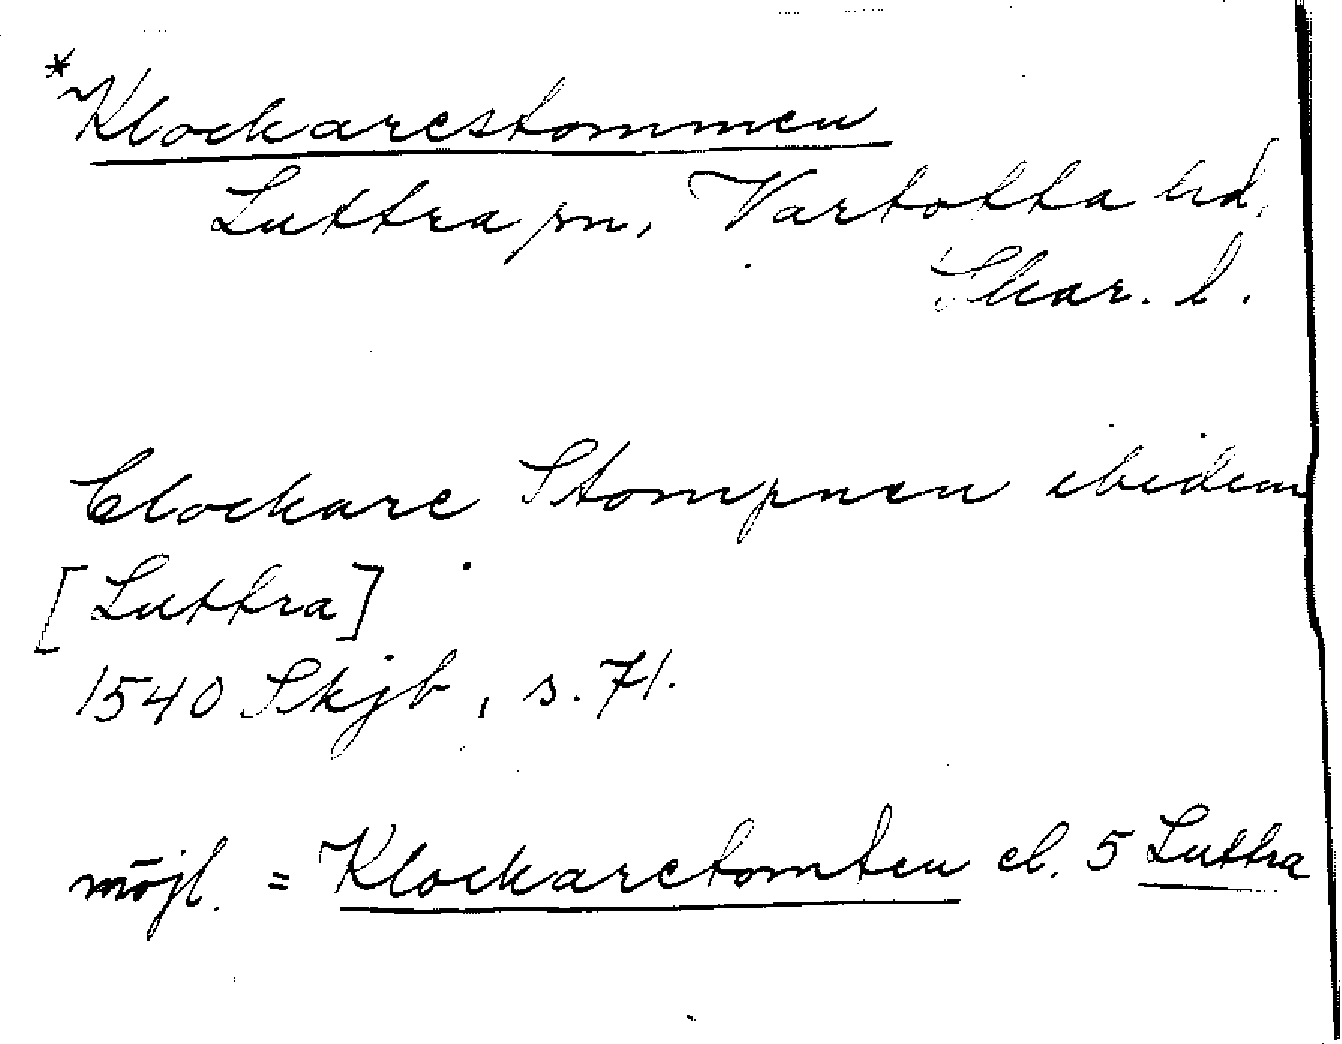 *Klockarestommen
Luttra sn, Vartofta hd,
Skar. l.
Clockare Stompnen ibidem
[Luttra]
1540 Skjb, s. 71.
möjl. = Klockaretomten el. 5 Luttra